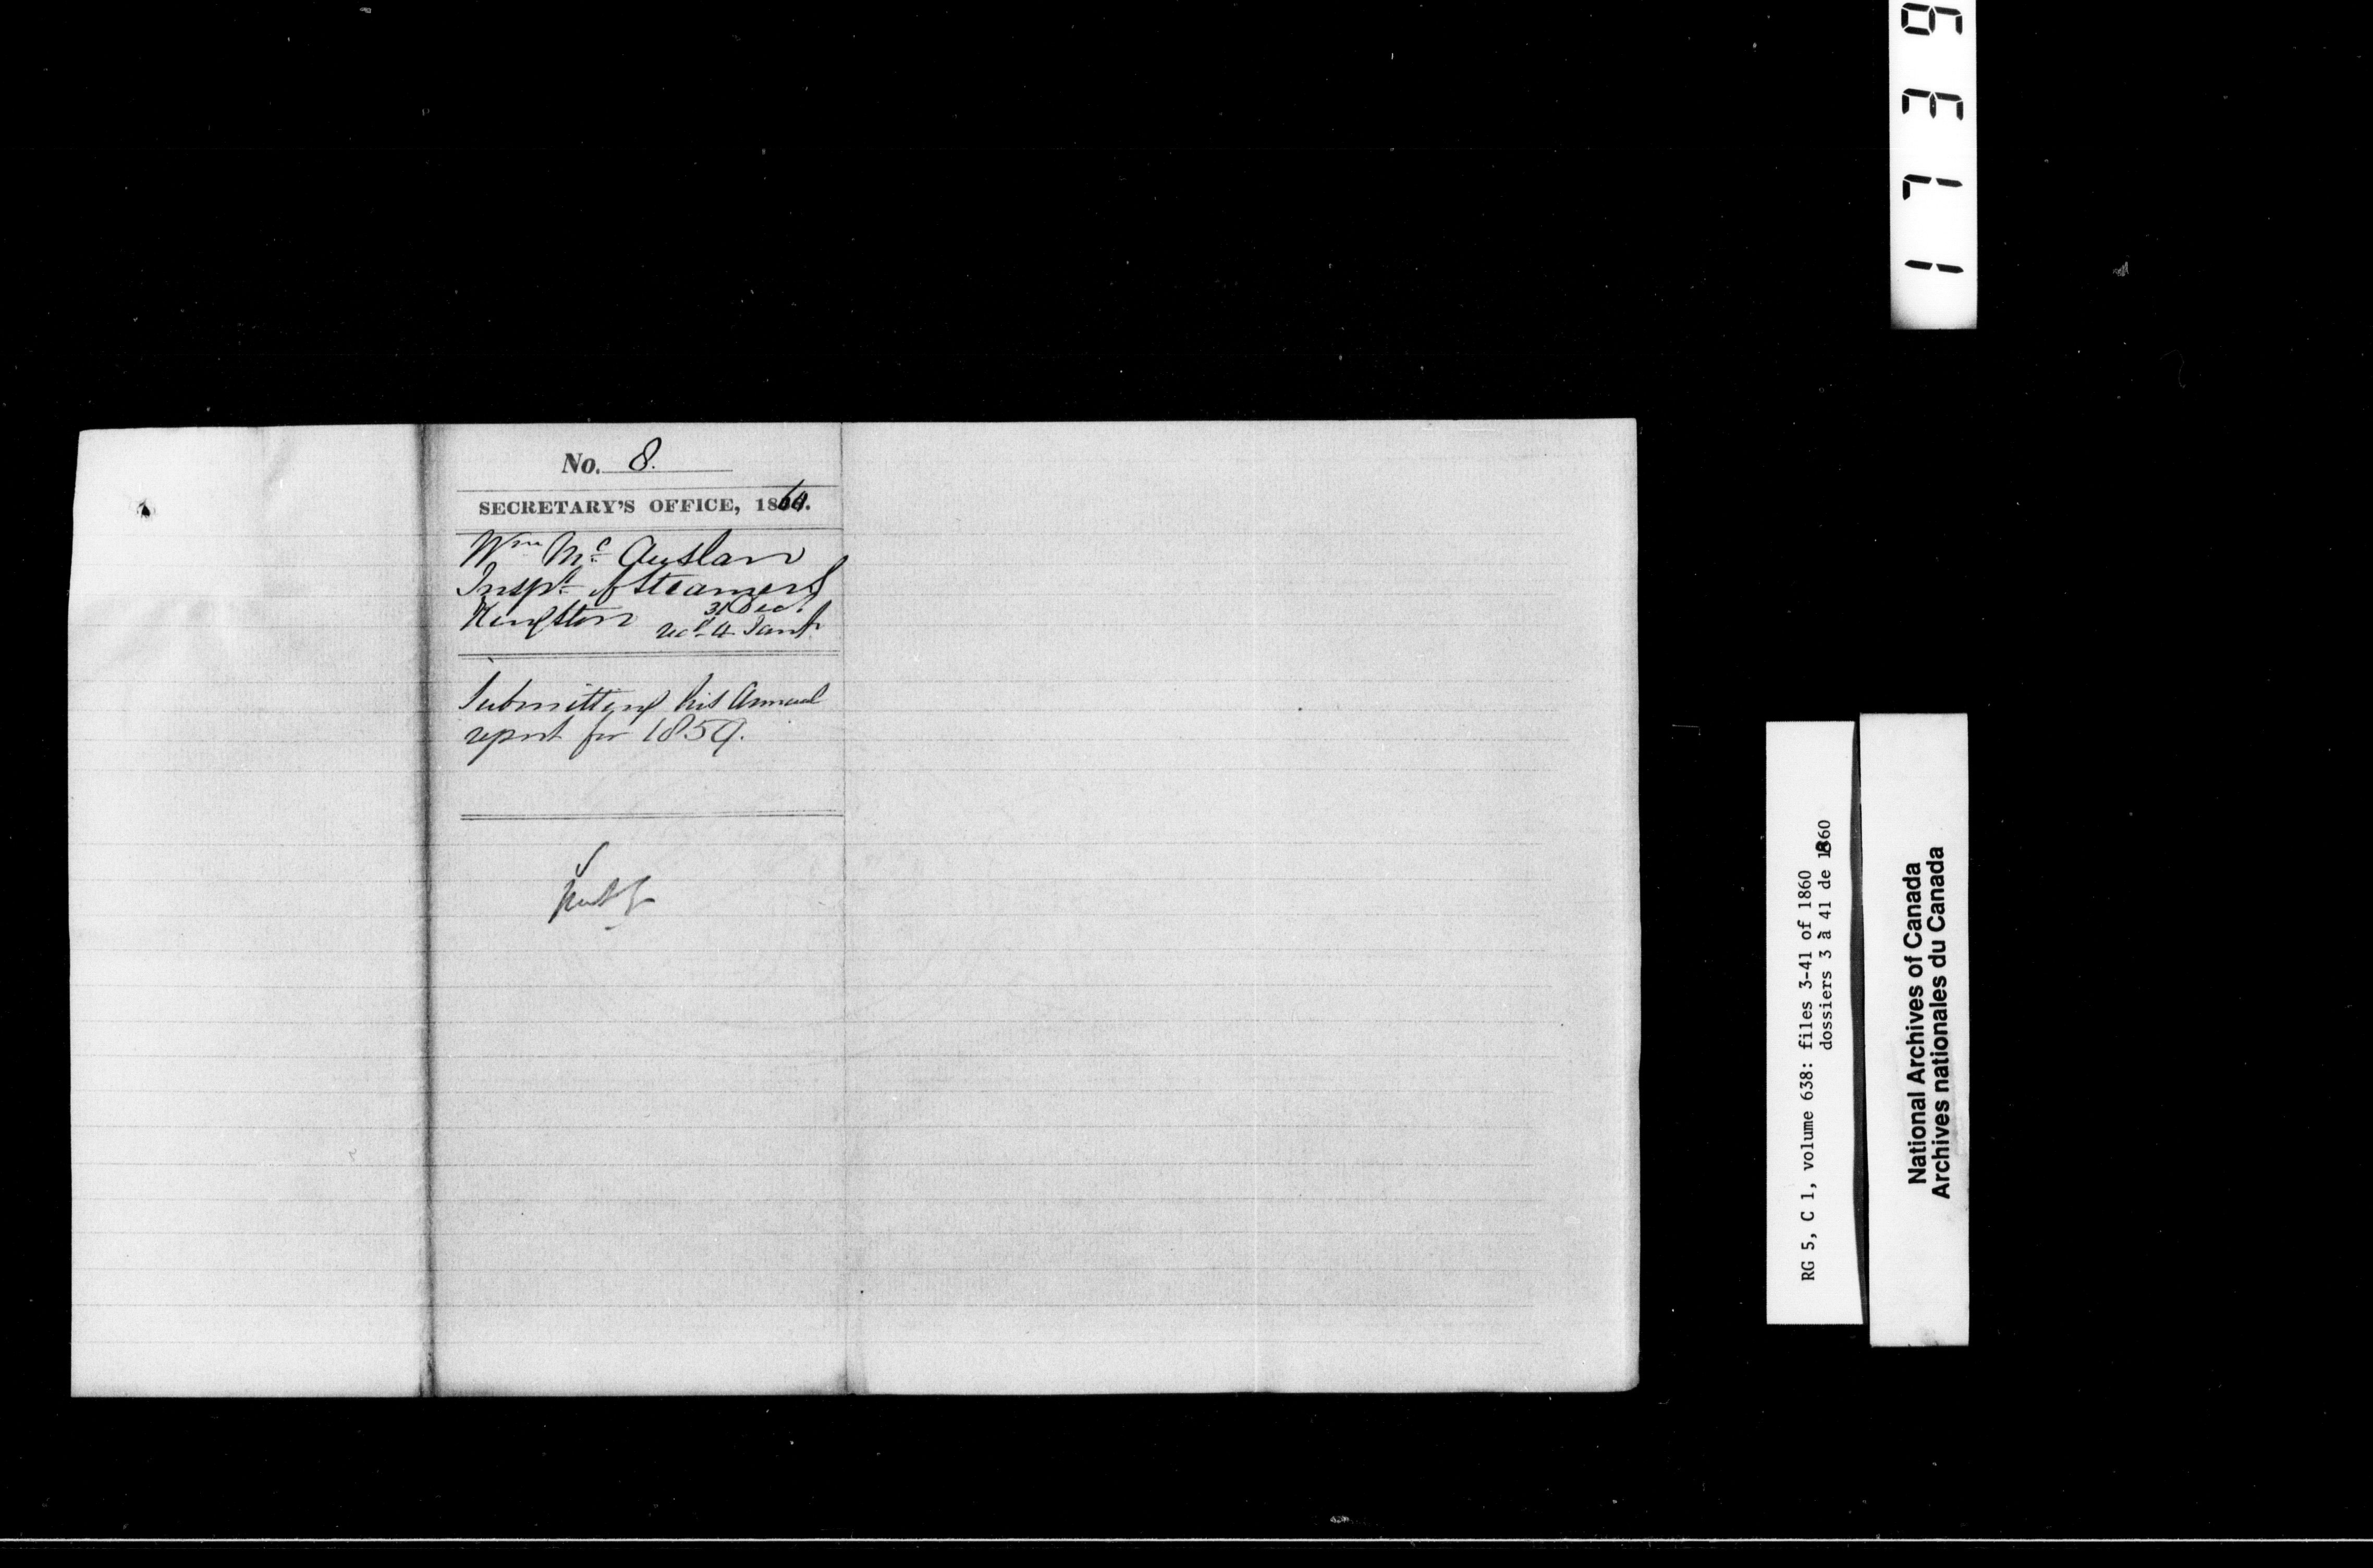 No. 8.
SECRETARY'S OFFICE, 1860.
Wm Mc Auslan
Inspr of Steamers
Kingston 31 Decr
recd 4 Jany
Submitting his Annual
report for 1859.
1739
RG 5, C 1, volume 638: files 3-41 of 1860
dossiers 3 à 41 de 1860
National Archives of Canada
Archives nationales du Canada